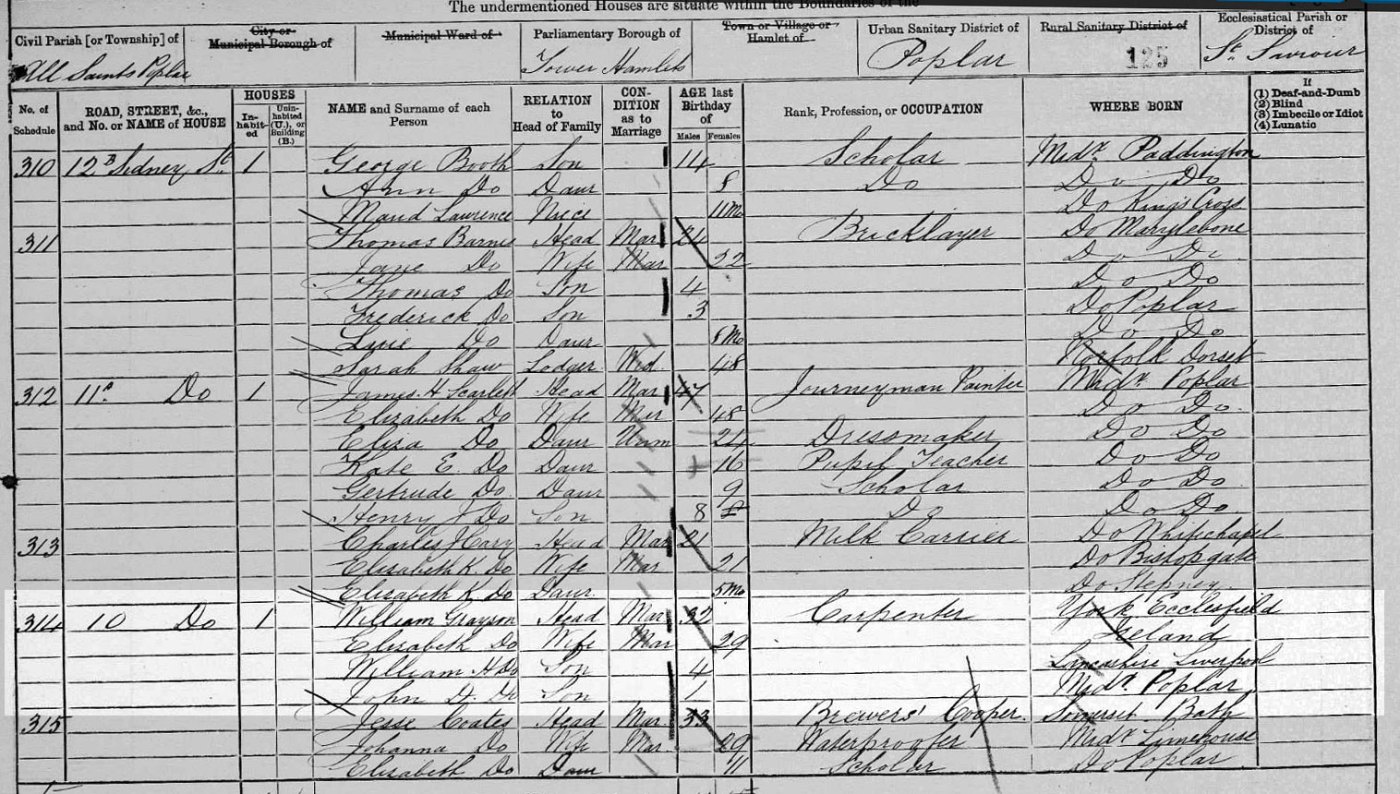 The undermentioned Houses are situate within the Boundaries of the
Civil Parish [or Township] of All Saints Poplar
City or Municipal Borough of
Municipal Ward of
Parliamentary Borough of Tower Hamlets
Town or Village or Hamlet of
Urban Sanitary District of Poplar
Rural Sanitary District of 125
Ecclesiastical Parish or District of St. Saviour
No. of Schedule
ROAD, STREET, &c., and No. or NAME of HOUSE
HOUSES
Inhabited
Uninhabited (U.), or Building (B.)
NAME and Surname of each Person
RELATION to Head of Family
CONDITION as to Marriage
AGE last Birthday of
Males Females
Rank, Profession, or OCCUPATION
WHERE BORN
If
(1) Deaf-and-Dumb
(2) Blind
(3) Imbecile or Idiot
(4) Lunatic
310 12B Sidney St 1 George Booth Son 14 Scholar Midx Paddington
Ann Do Daur 8 Do Do Do
Maud Lawrence Niece 11 Mo Do Kings Cross
311 Thomas Barnes Head Mar 24 Bricklayer Do Marrylebone
Jane Do Wife Mar 22 Do Do
Thomas Do Son 4 Do Do
Frederick Do Son 3 Do Poplar
Do Daur 8 Mo Do Do
Sarah Shaw Lodger Wid 48 Norfolk Dorset
312 11 Do 1 James H Scarlett Head Mar 47 Journeyman Painter Midx Poplar
Elizabeth Do Wife Mar 48 Do Do
Eliza Do Daur Unm 24 Dressmaker Do Do
Kate E. Do Daur 16 Pupil Teacher Do Do
Gertrude Do Daur 9 Scholar Do Do
Henry J Do Son 8 Do Do Do
313 Charles Head Mar 21 Milk Carrier Do Whitechapel
Elizabeth K. Do Wife Mar 21 Do Bishopgate
Elizabeth K Do Daur 5 Mo Do Stepney
314 10 Do 1 William Grayson Head Mar 32 Carpenter York Ecclesfield
Elizabeth Do Wife Mar 29 Ireland
William H Do Son 4 Lancashire Liverpool
John D. Do Son 1 Midx Poplar
315 Jesse Coates Head Mar 33 Brewers' Cooper Somerset Bath
Johanna Do Wife Mar 29 Waterproofer Midx Limehouse
Elizabeth Do Daur 11 Scholar Do Poplar